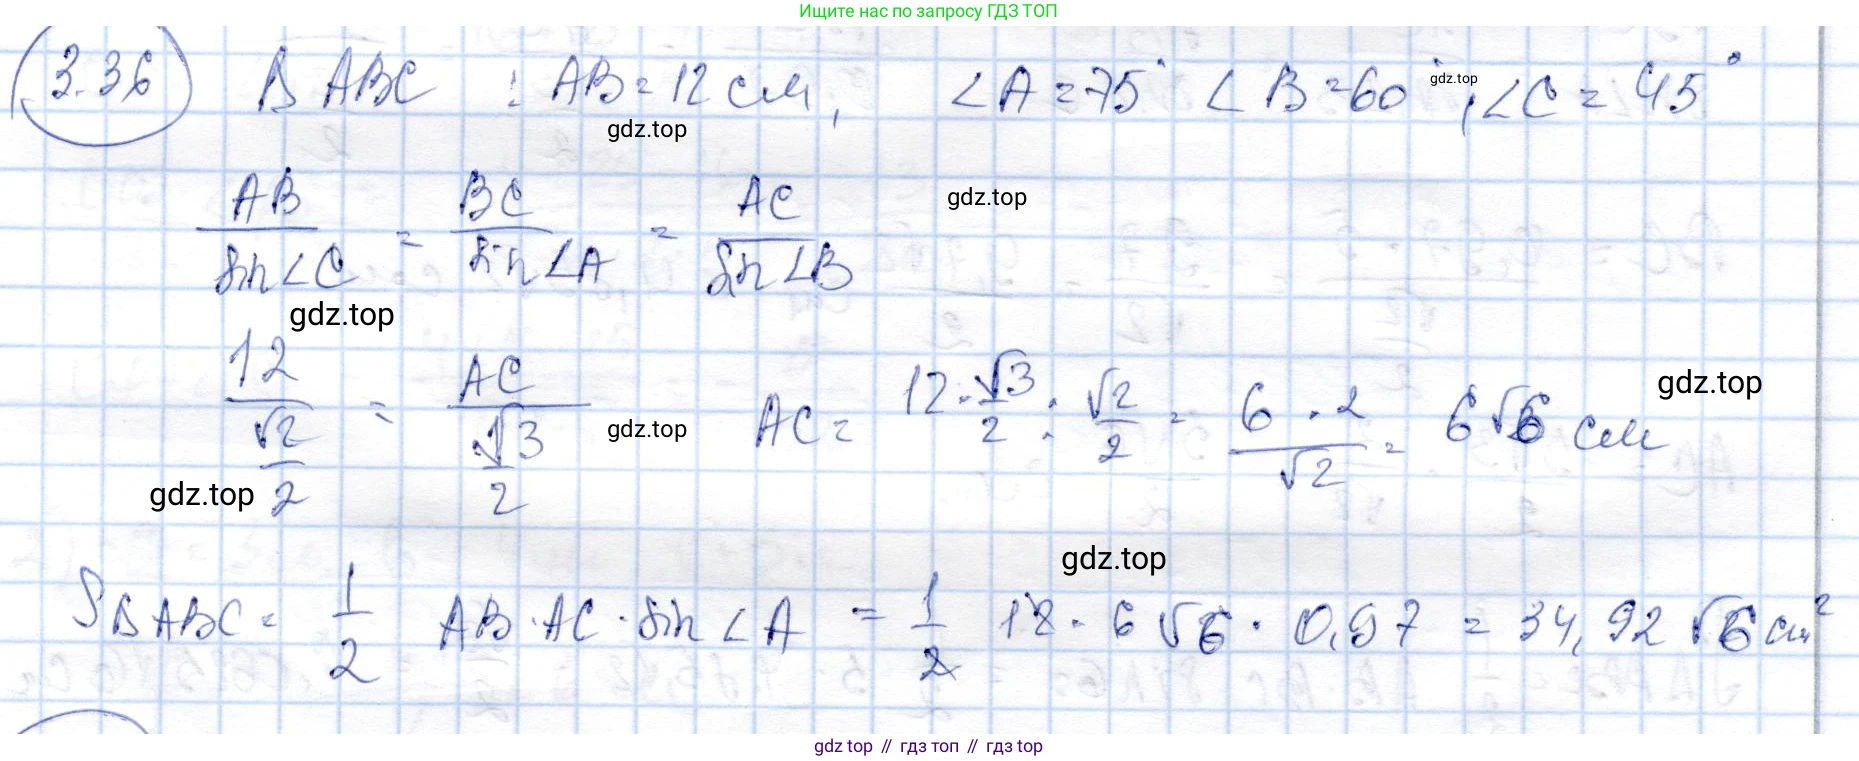 Ищите нас по запросу ГДЗ ТОП
3.36 Δ ABC : AB = 12 см, ∠A = 75° ∠B = 60°, ∠C = 45°
gdz.top
gdz.top
AB/sin∠C = BC/sin∠A = AC/sin∠B
gdz.top
gdz.top
12/(√2/2) = AC/(√3/2) AC = 12 · √3/2 : √2/2 = 6 · 2/√2 = 6√6 см
gdz.top
gdz.top
gdz.top
gdz.top
S Δ ABC = 1/2 AB · AC · sin∠A = 1/2 12 · 6√6 · 0,97 = 34,92√6 см²
gdz top // гдз топ // гдз top